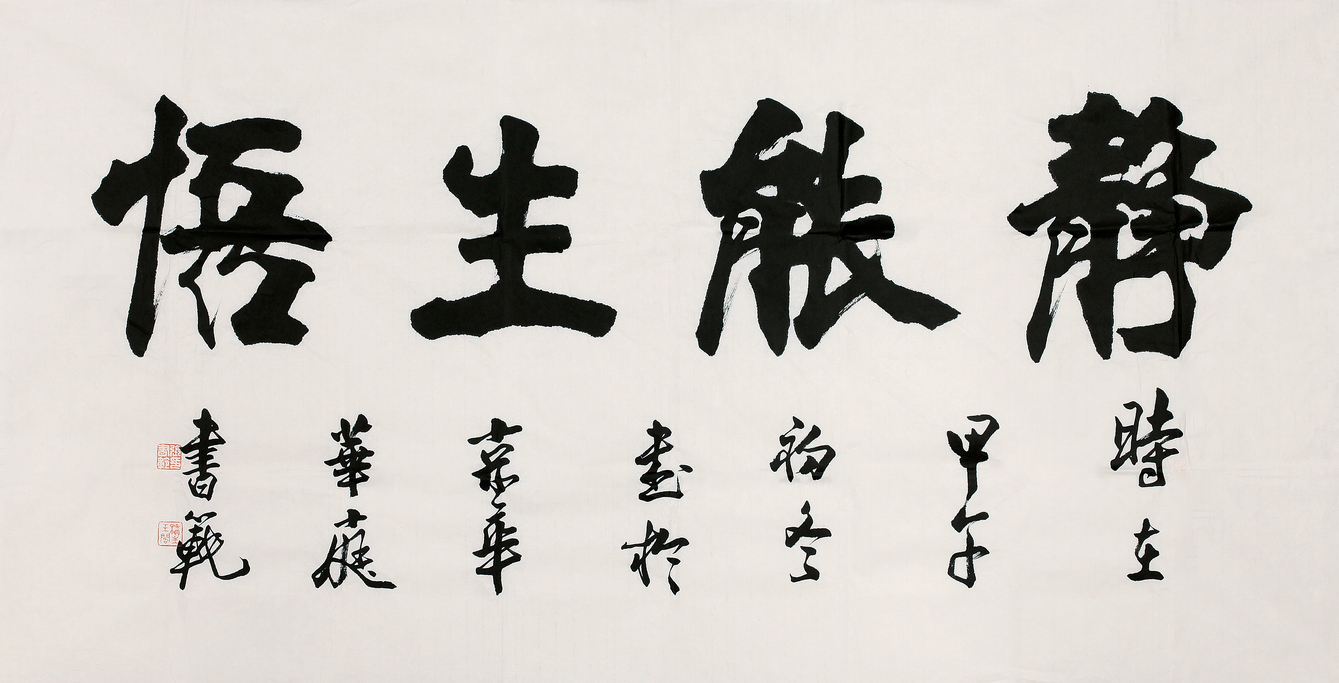 靜能生悟
時在
甲午
初冬
書於
京華
華庭
書範